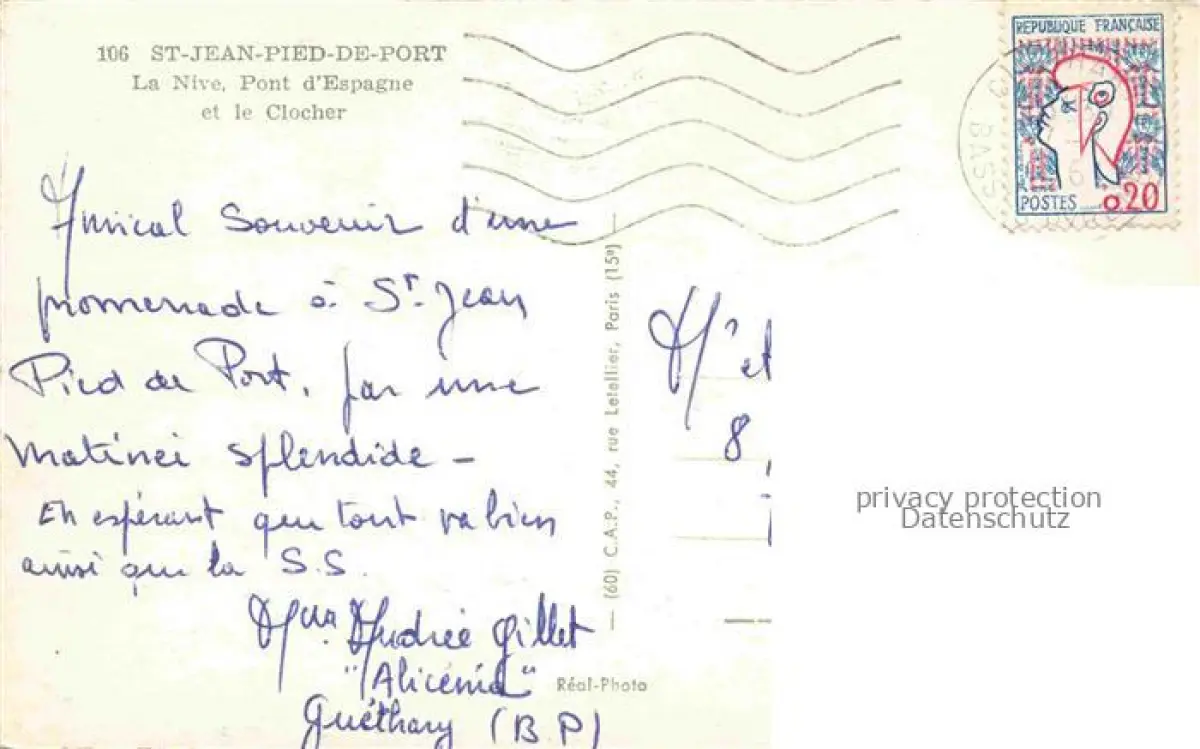 106 ST-JEAN-PIED-DE-PORT
La Nive, Pont d'Espagne
et le Clocher
Amical Souvenir d'une
promenade à St. Jean
Pied de Port, par une
Matinée splendide -
En espérant que tout va bien
ainsi que la S.S.
Andrée Gillet
"Alicénia"
Guéthary (B.P)
Réal-Photo
— (60) C.A.P., 44, rue Letellier, Paris (15e) —
REPUBLIQUE FRANÇAISE
POSTES 0,20
BASSES
M. et
8,
privacy protection
Datenschutz